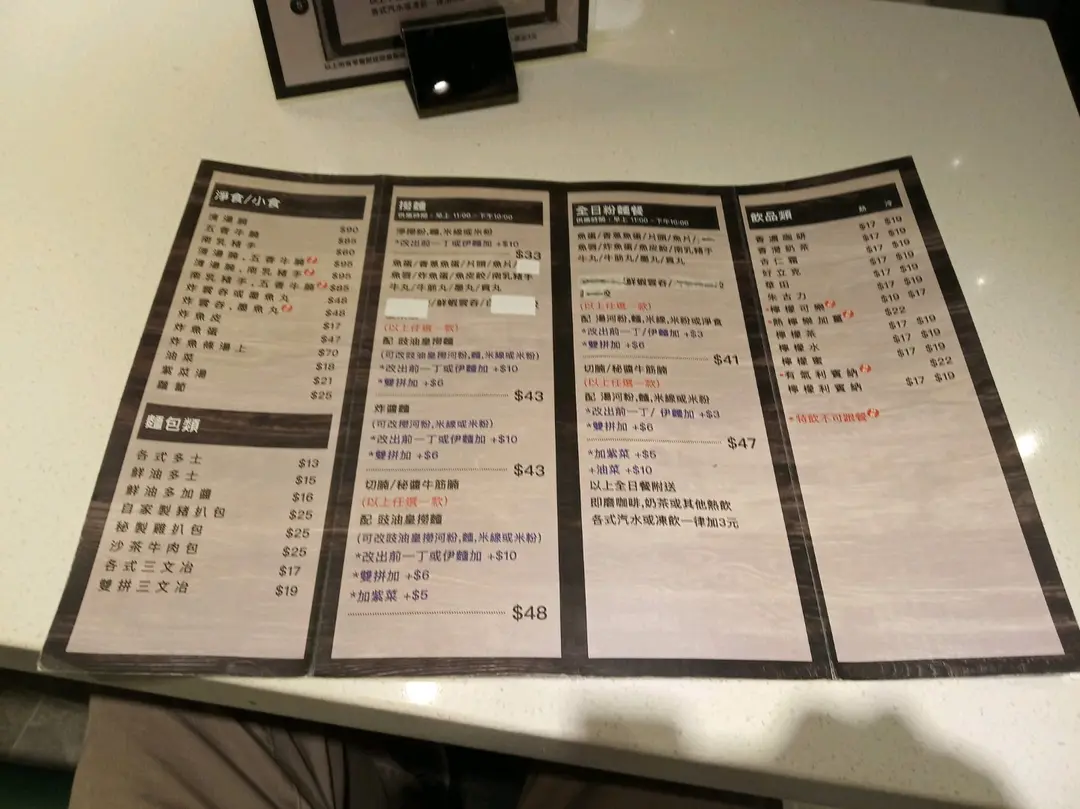 各式汽水或凍飲一律加
淨食/小食
清湯腩 $90
五香牛腩 $85
南乳豬手 $60
清湯腩,五香牛腩 $95
清湯腩,南乳豬手 $95
南乳豬手,五香牛腩 $85
炸雲吞或墨魚丸 $48
炸雲吞,墨魚丸 $48
炸魚皮 $17
炸魚蛋 $47
炸魚條湯上 $70
油菜 $18
紫菜湯 $21
蘿蔔 $25
麵包類
各式多士 $13
鮮油多士 $15
鮮油多加醬 $16
自家製豬扒包 $25
秘製雞扒包 $25
沙茶牛肉包 $25
各式三文冶 $17
雙拼三文冶 $19
撈麵
供應時間:早上 11:00 - 下午10:00
淨撈粉,麵,米線或米粉
*改出前一丁或伊麵加 +$10
$33
魚蛋/香蔥魚蛋/片頭/魚片/
魚唇/炸魚蛋/魚皮餃/南乳豬手
牛丸/牛筋丸/墨丸/貢丸
/鮮蝦雲吞/
(以上任選一款)
配 豉油皇撈麵
(可改豉油皇撈河粉,麵,米線或米粉)
*改出前一丁或伊麵加 +$10
*雙拼加 +$6
$43
炸醬麵
(可改撈河粉,米線或米粉)
*改出前一丁或伊麵加 +$10
*雙拼加 +$6
$43
切腩/秘醬牛筋腩
(以上任選一款)
配 豉油皇撈麵
(可改豉油皇撈河粉,麵,米線或米粉)
*改出前一丁或伊麵加 +$10
*雙拼加 +$6
*加紫菜 +$5
$48
全日粉麵餐
供應時間:早上 11:00 - 下午10:00
魚蛋/香蔥魚蛋/片頭/魚片/
魚唇/炸魚蛋/魚皮餃/南乳豬手
牛丸/牛筋丸/墨丸/貢丸
/鮮蝦雲吞/
(以上任選一款)
配 湯河粉,麵,米線,米粉或淨食
*改出前一丁/伊麵加 +$3
*雙拼加 +$6
$41
切腩/秘醬牛筋腩
(以上任選一款)
配 湯河粉,麵,米線或米粉
*改出前一丁/ 伊麵加 +$3
*雙拼加 +$6
$47
*加紫菜 +$5
+油菜 +$10
以上全日餐附送
即磨咖啡,奶茶或其他熱飲
各式汽水或凍飲一律加3元
飲品類 熱 冷
香濃咖啡 $17 $19
香滑奶茶 $17 $19
杏仁霜 $17 $19
好立克 $17 $19
華田 $17 $19
朱古力 $17 $19
*檸檬可樂 $19 $17
*熱檸樂加薑 $22
檸檬茶 $17 $19
檸檬水 $17 $19
檸檬蜜 $17 $19
*有氣利賓納 $22
檸檬利賓納 $17 $19
*特飲不可跟餐